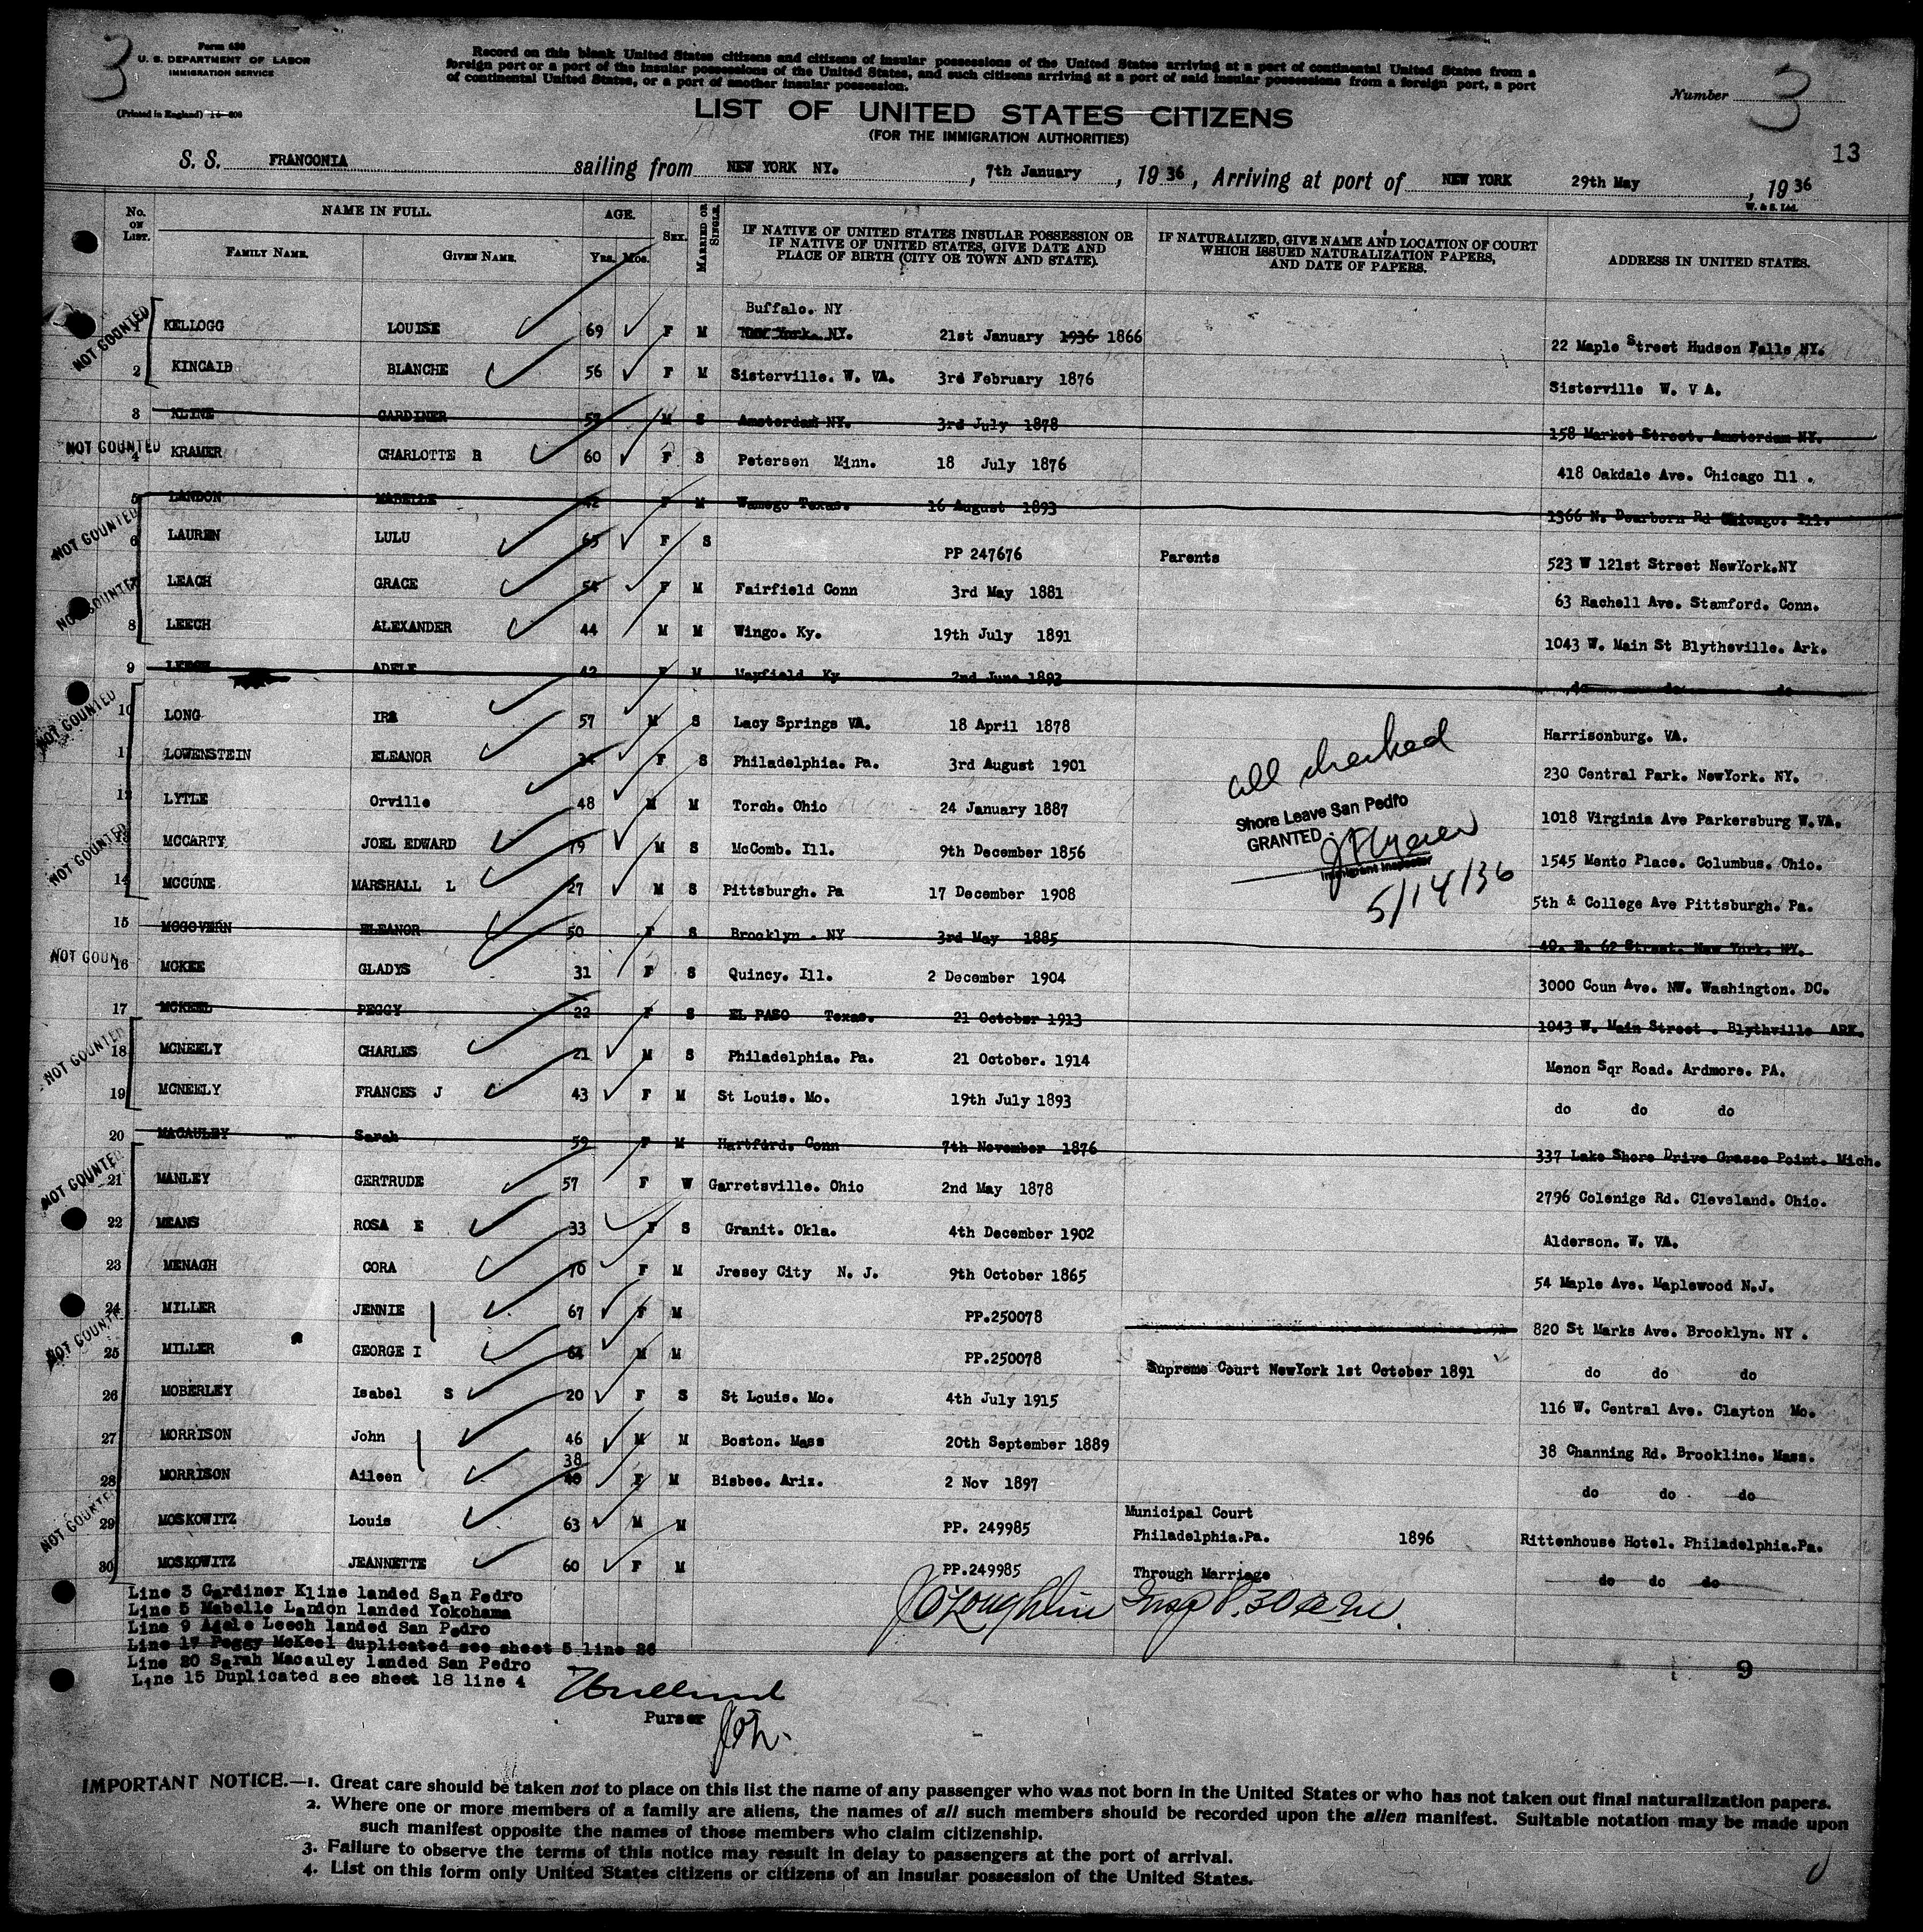 3
Form 630
U. S. DEPARTMENT OF LABOR
IMMIGRATION SERVICE
(Printed in England) 14-606
Record on this blank United States citizens and citizens of insular possessions of the United States arriving at a port of continental United States from a
foreign port or a port of the insular possessions of the United States, and such citizens arriving at a port of said insular possessions from a foreign port, a port
of continental United States, or a port of another insular possession.
Number 3
LIST OF UNITED STATES CITIZENS
(FOR THE IMMIGRATION AUTHORITIES)
13
S. S. FRANCONIA sailing from NEW YORK NY. , 7th January , 1936, Arriving at port of NEW YORK 29th May , 1936
W. & S. Ltd.
No. ON LIST. NAME IN FULL. FAMILY NAME. GIVEN NAME. AGE. Yrs. Mos. SEX. MARRIED OR SINGLE. IF NATIVE OF UNITED STATES INSULAR POSSESSION OR IF NATIVE OF UNITED STATES, GIVE DATE AND PLACE OF BIRTH (CITY OR TOWN AND STATE). IF NATURALIZED, GIVE NAME AND LOCATION OF COURT WHICH ISSUED NATURALIZATION PAPERS, AND DATE OF PAPERS. ADDRESS IN UNITED STATES.
Buffalo. NY
KELLOGG LOUISE 69 F M New York. NY. 21st January 1936 1866 22 Maple Street Hudson Falls NY.
NOT COUNTED
2 KINCAID BLANCHE 56 F M Sisterville. W. VA. 3rd February 1876 Sisterville W. V A.
3 KLINE GARDINER 57 M S Amsterdam NY. 3rd July 1878 158 Market Street. Amsterdam NY.
NOT COUNTED
4 KRAMER CHARLOTTE R 60 F S Petersen Minn. 18 July 1876 418 Oakdale Ave. Chicago Ill .
5 LANDON MABELLE 42 F M Wamego Texas. 16 August 1893 1366 N. Dearborn Rd Chicago. Ill.
NOT COUNTED
6 LAUREN LULU 65 F S PP 247676 Parents 523 W 121st Street NewYork.NY
NOT COUNTED
LEACH GRACE 54 F M Fairfield Conn 3rd May 1881 63 Rachell Ave. Stamford. Conn.
8 LEECH ALEXANDER 44 M M Wingo. Ky. 19th July 1891 1043 W. Main St Blytheville. Ark.
9 LEECH ADELE 42 F M Mayfield Ky 2nd June 1893 do do do
NOT COUNTED
10 LONG IRA 57 M S Lacy Springs VA. 18 April 1878 Harrisonburg. VA.
11 LOWENSTEIN ELEANOR 34 F S Philadelphia. Pa. 3rd August 1901 230 Central Park. NewYork. NY.
12 LYTLE Orville 48 M M Torch. Ohio 24 January 1887 1018 Virginia Ave Parkersburg W.VA.
NOT COUNTED
13 MCCARTY JOEL EDWARD 79 M S McComb. Ill. 9th December 1856 1545 Mento Place. Columbus. Ohio.
14 MCCUNE MARSHALL L 27 M S Pittsburgh. Pa 17 December 1908 5th & College Ave Pittsburgh. Pa.
all checked
Shore Leave San Pedro
GRANTED
Immigrant Inspector
5/14/36
15 MCGOVERN ELEANOR 50 F S Brooklyn . NY 3rd May 1885 40. E. 62 Street. New York. NY.
NOT COUN
16 MCKEE GLADYS 31 F S Quincy. Ill. 2 December 1904 3000 Coun Ave. NW. Washington. DC.
17 MCKEEL PEGGY 22 F S EL PASO Texas. 21 October 1913 1043 W. Main Street . Blythville ARK.
NOT COUNTED
18 MCNEELY CHARLES 21 M S Philadelphia. Pa. 21 October. 1914 Menon Sqr Road. Ardmore. PA.
19 MCNEELY FRANCES J 43 F M St Louis. Mo. 19th July 1893 do do do
20 MACAULEY Sarah 59 F M Hartfurd. Conn 7th November 1876 337 Lake Shore Drive Grasse Point. Mich.
NOT COUNTED
21 MANLEY GERTRUDE 57 F W Garretsville. Ohio 2nd May 1878 2796 Colenige Rd. Cleveland. Ohio.
22 MEANS ROSA E 33 F S Granit. Okla. 4th December 1902 Alderson. W. VA.
23 MENAGH CORA 70 F M Jresey City N. J. 9th October 1865 54 Maple Ave. Maplewood N.J.
24 MILLER JENNIE 67 F M PP.250078 820 St Marks Ave. Brooklyn. NY .
NOT COUNTED
25 MILLER GEORGE I 64 M M PP.250078 Supreme Court NewYork 1st October 1891 do do do
26 MOBERLEY Isabel S 20 F S St Louis. Mo. 4th July 1915 116 W. Central Ave. Clayton Mo.
27 MORRISON John 46 M M Boston. Mass 20th September 1889 38 Channing Rd. Brookline. Mass.
38
28 MORRISON Aileen 40 F M Bisbee. Ariz. 2 Nov 1897 do do do
NOT COUNTED
29 MOSKOWITZ Louis 63 M M PP. 249985 Municipal Court Philadelphia.Pa. 1896 Rittenhouse Hotel. Philadelphia.Pa.
30 MOSKOWITZ JEANNETTE 60 F M PP.249985 Through Marriage do do do
Line 3 Gardiner Kline landed San Pedro
Line 5 Mabelle Landon landed Yokohama
Line 9 Adele Leech landed San Pedro
Line 17 Peggy McKeel duplicated see sheet 5 line 26
Line 20 Sarah Macauley landed San Pedro
Line 15 Duplicated see sheet 18 line 4
J O'Loughlin Insp 8.30 a m
9
Purser
IMPORTANT NOTICE.—1. Great care should be taken not to place on this list the name of any passenger who was not born in the United States or who has not taken out final naturalization papers.
2. Where one or more members of a family are aliens, the names of all such members should be recorded upon the alien manifest. Suitable notation may be made upon
such manifest opposite the names of those members who claim citizenship.
3. Failure to observe the terms of this notice may result in delay to passengers at the port of arrival.
4. List on this form only United States citizens or citizens of an insular possession of the United States.